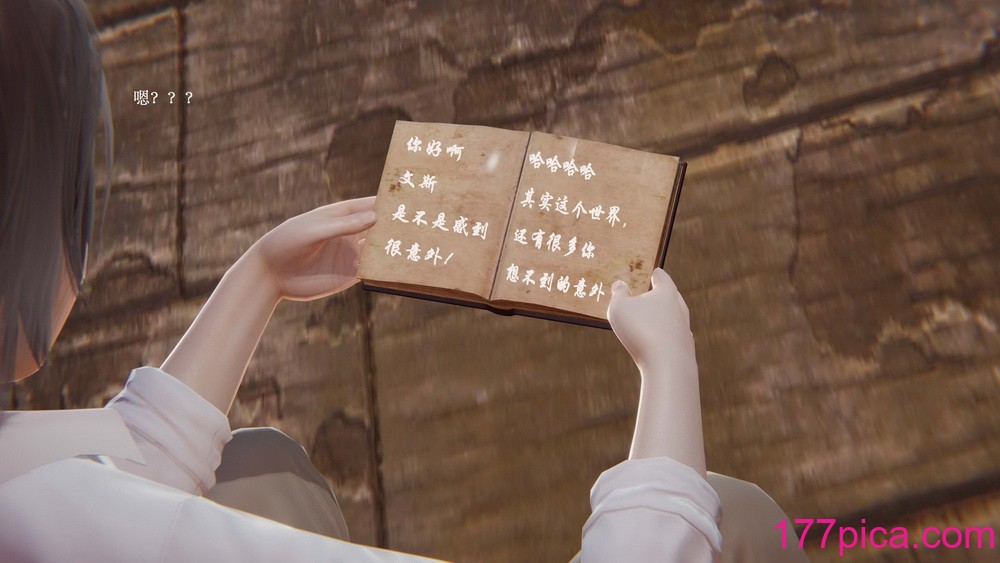 嗯？？？
你好啊
文斯
是不是感到
很意外！
哈哈哈哈
其实这个世界，
还有很多你
想不到的意外
177pica.com